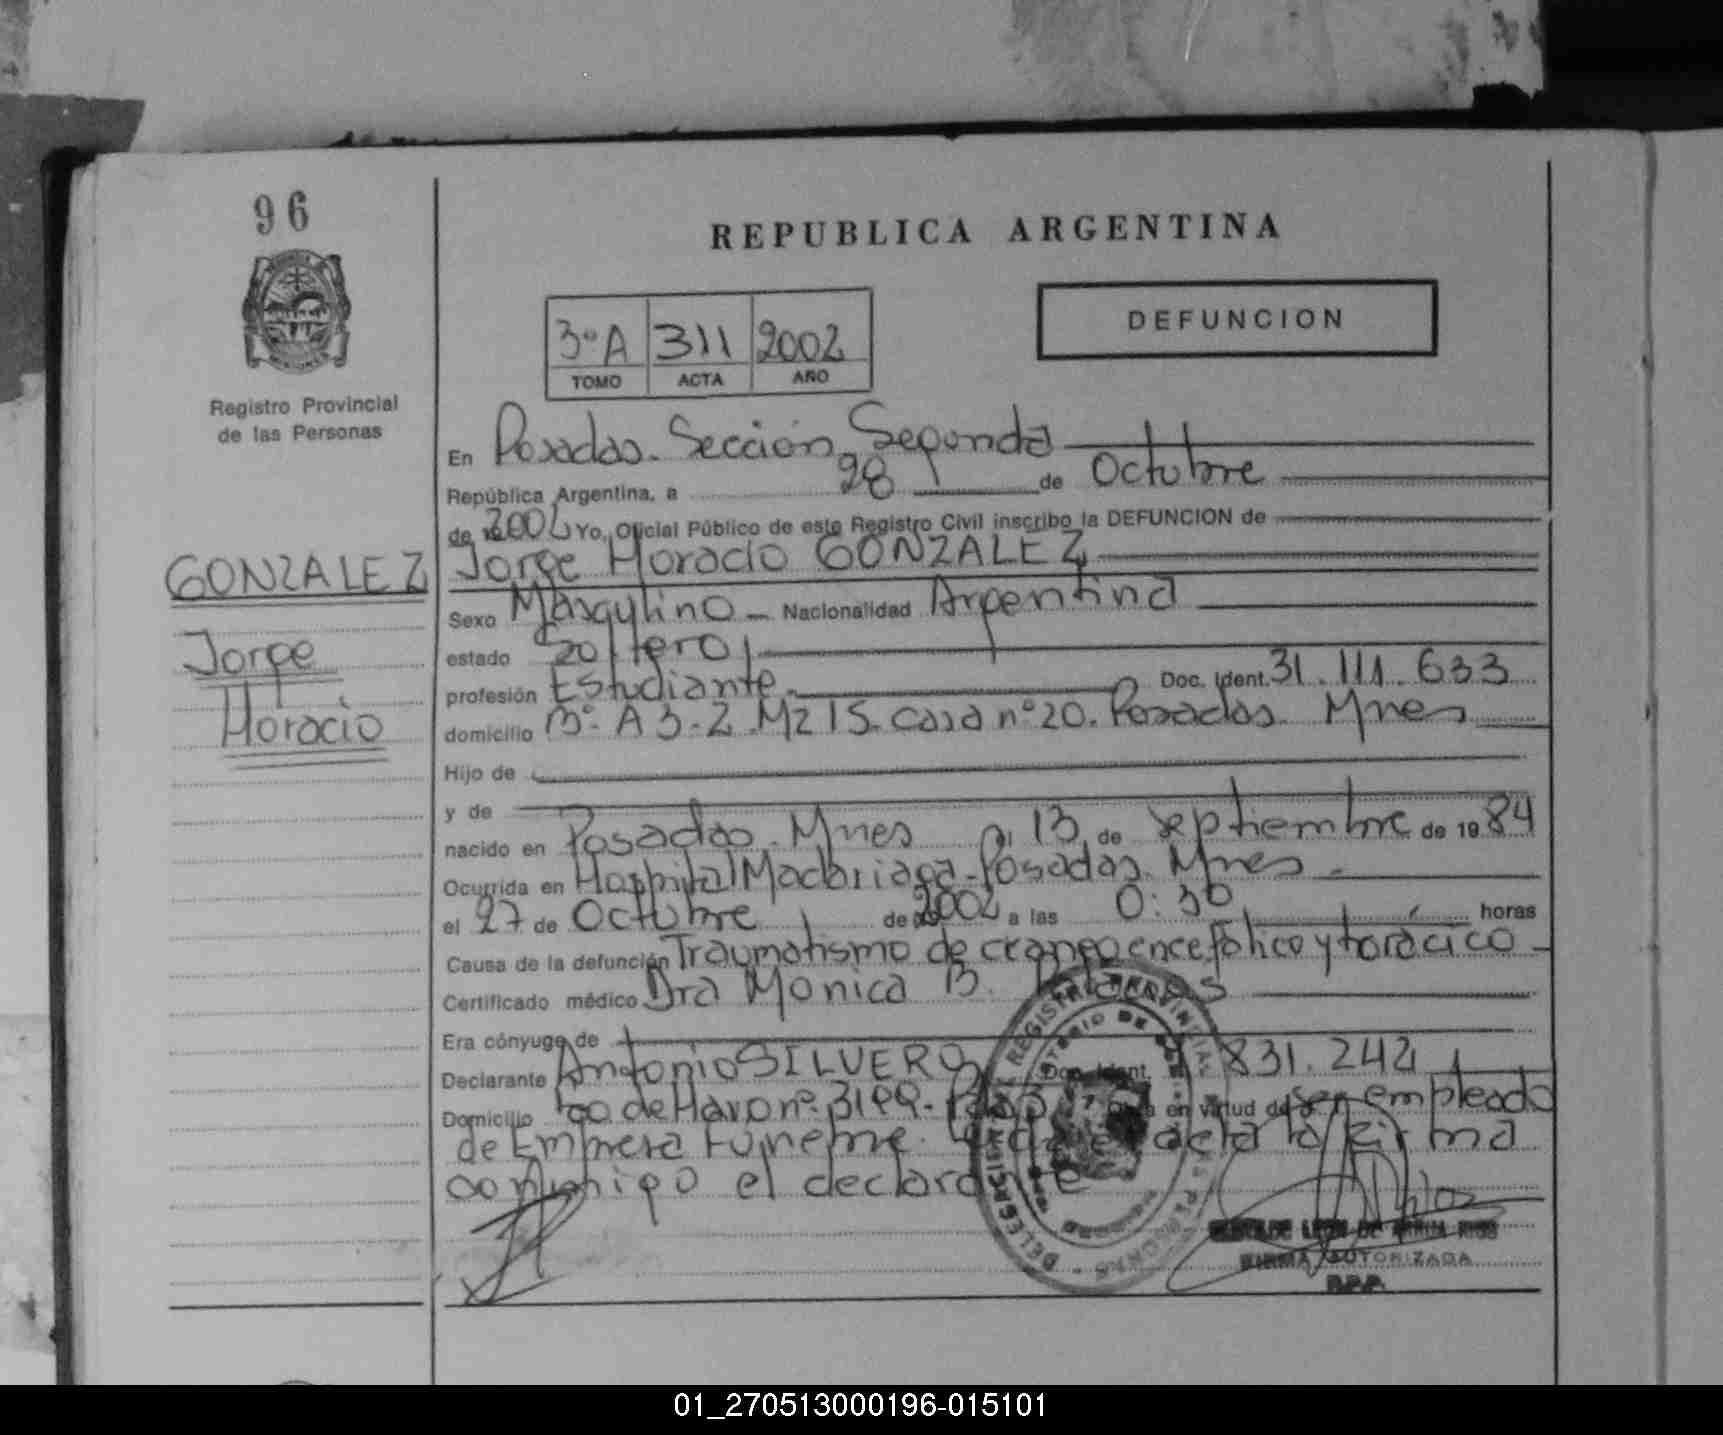 96
REPUBLICA ARGENTINA
DEFUNCION
3º A 311 2002
TOMO ACTA AÑO
Registro Provincial
de las Personas
En Posadas. Sección Segunda
República Argentina, a 28 de Octubre
de 2002 Yo, Oficial Público de este Registro Civil inscribo la DEFUNCION de
GONZALEZ
Jorge
Horacio
Jorge Horacio GONZALEZ
Sexo Masculino Nacionalidad Argentina
estado Soltero
profesión Estudiante Doc. Ident. 31.111.633
domicilio Bº A 3-2 Mz 15 casa nº 20. Posadas. Mnes
Hijo de
y de
nacido en Posadas. Mnes el 13 de septiembre de 1984
Ocurrida en Hospital Madariaga-Posadas. Mnes.
el 27 de Octubre de 2002 a las 0:30 horas
Causa de la defunción Traumatismo de craneo encefálico y torácico
Certificado médico Dra Monica B.
Era cónyuge de
Declarante Antonio SILVERO Doc. Ident. 831.242
Domicilio en virtud de ser empleado
de Empresa Fúnebre. acta la firma
conmigo el declarante
FIRMA AUTORIZADA
01_270513000196-015101